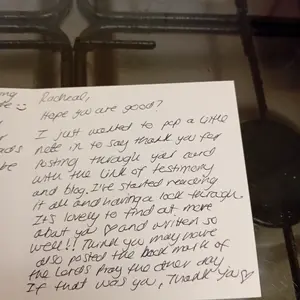 ong
e :)
Racheal,
Hope you are good?
I just wanted to pop a little
note in to say thank you for
posting through your card
with the link of testimony
and blog. I've started reading
it all and having a look through.
It's lovely to find out more
about you ♡ and written so
well!! Think you may have
also posted the book mark of
the Lords Pray the other day
If that was you, Thank you ♡
r
ads
be